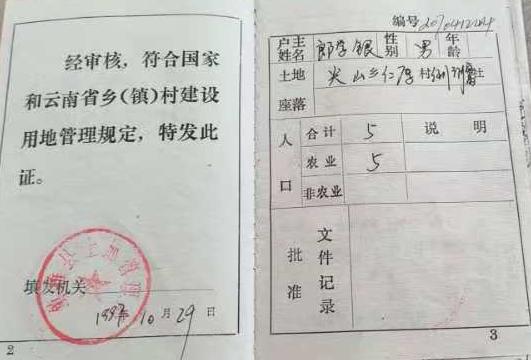 经审核，符合国家
和云南省乡（镇）村建设
用地管理规定，特发此
证。
填发机关
10月29日
2
编号
户主姓名 郎学银 性别 男 年龄
土地座落 尖山乡仁厚村
人口 合计 5 说明
农业 5
非农业
批准文件记录
3